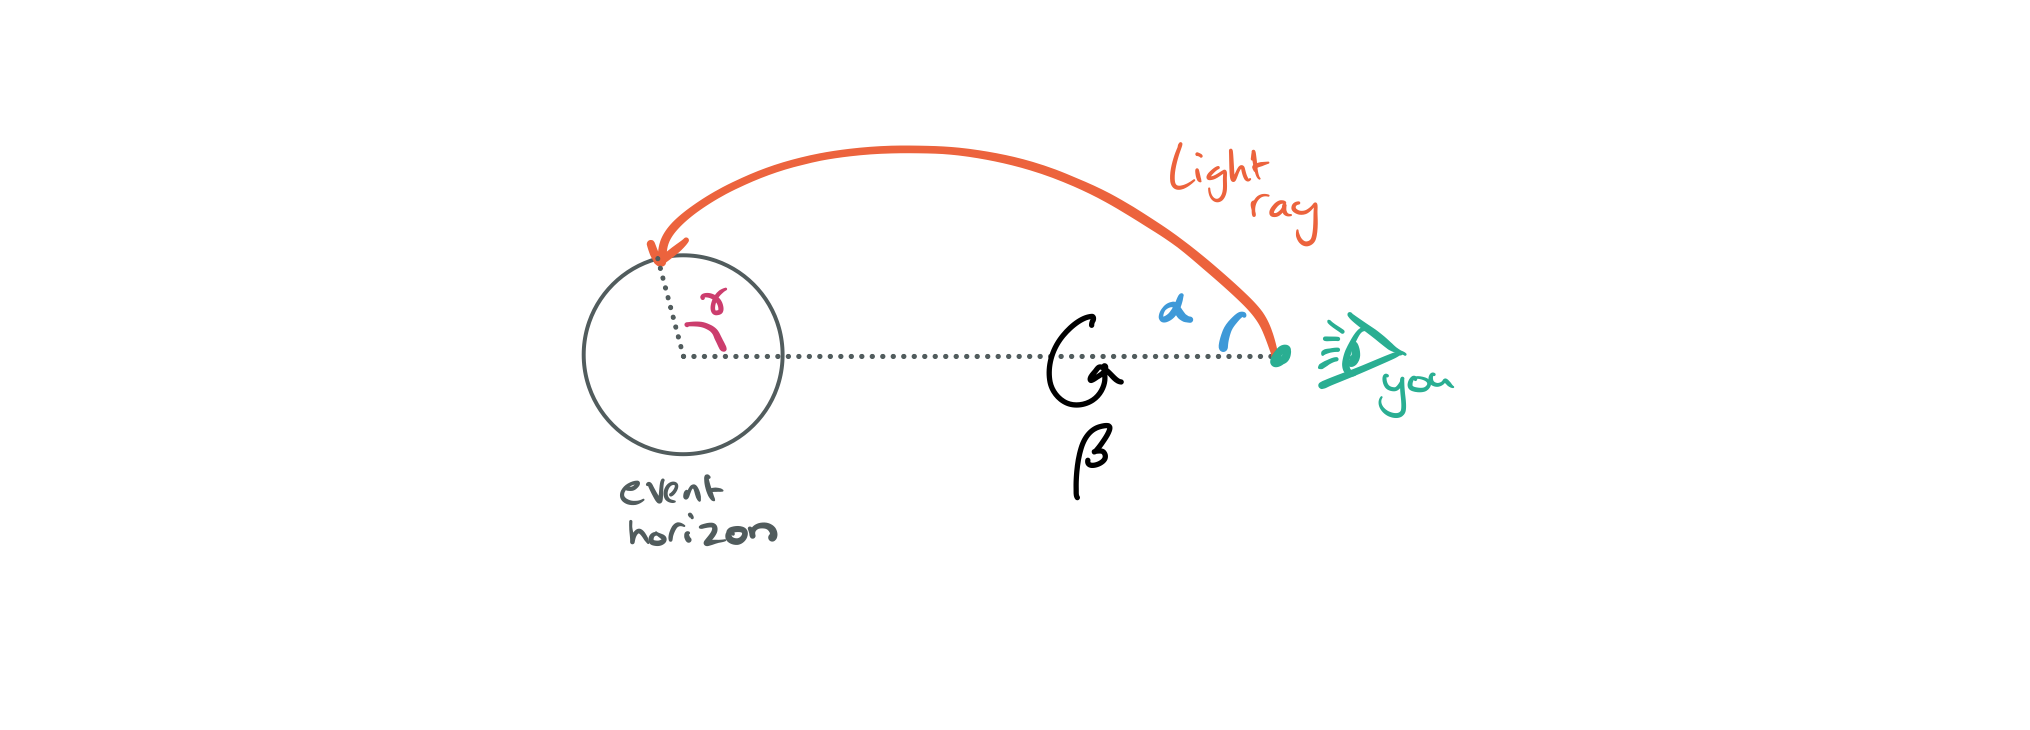 Light
ray
α
γ
you
β
event
horizon